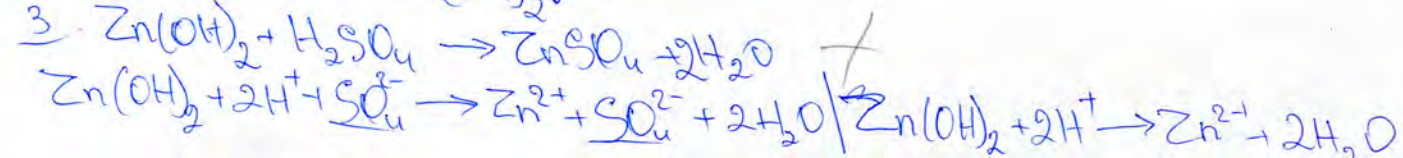 3. Zn(OH)₂ + H₂SO₄ → ZnSO₄ + 2H₂O +
Zn(OH)₂ + 2H⁺ + SO₄²⁻ → Zn²⁺ + SO₄²⁻ + 2H₂O | Zn(OH)₂ + 2H⁺ → Zn²⁺ + 2H₂O